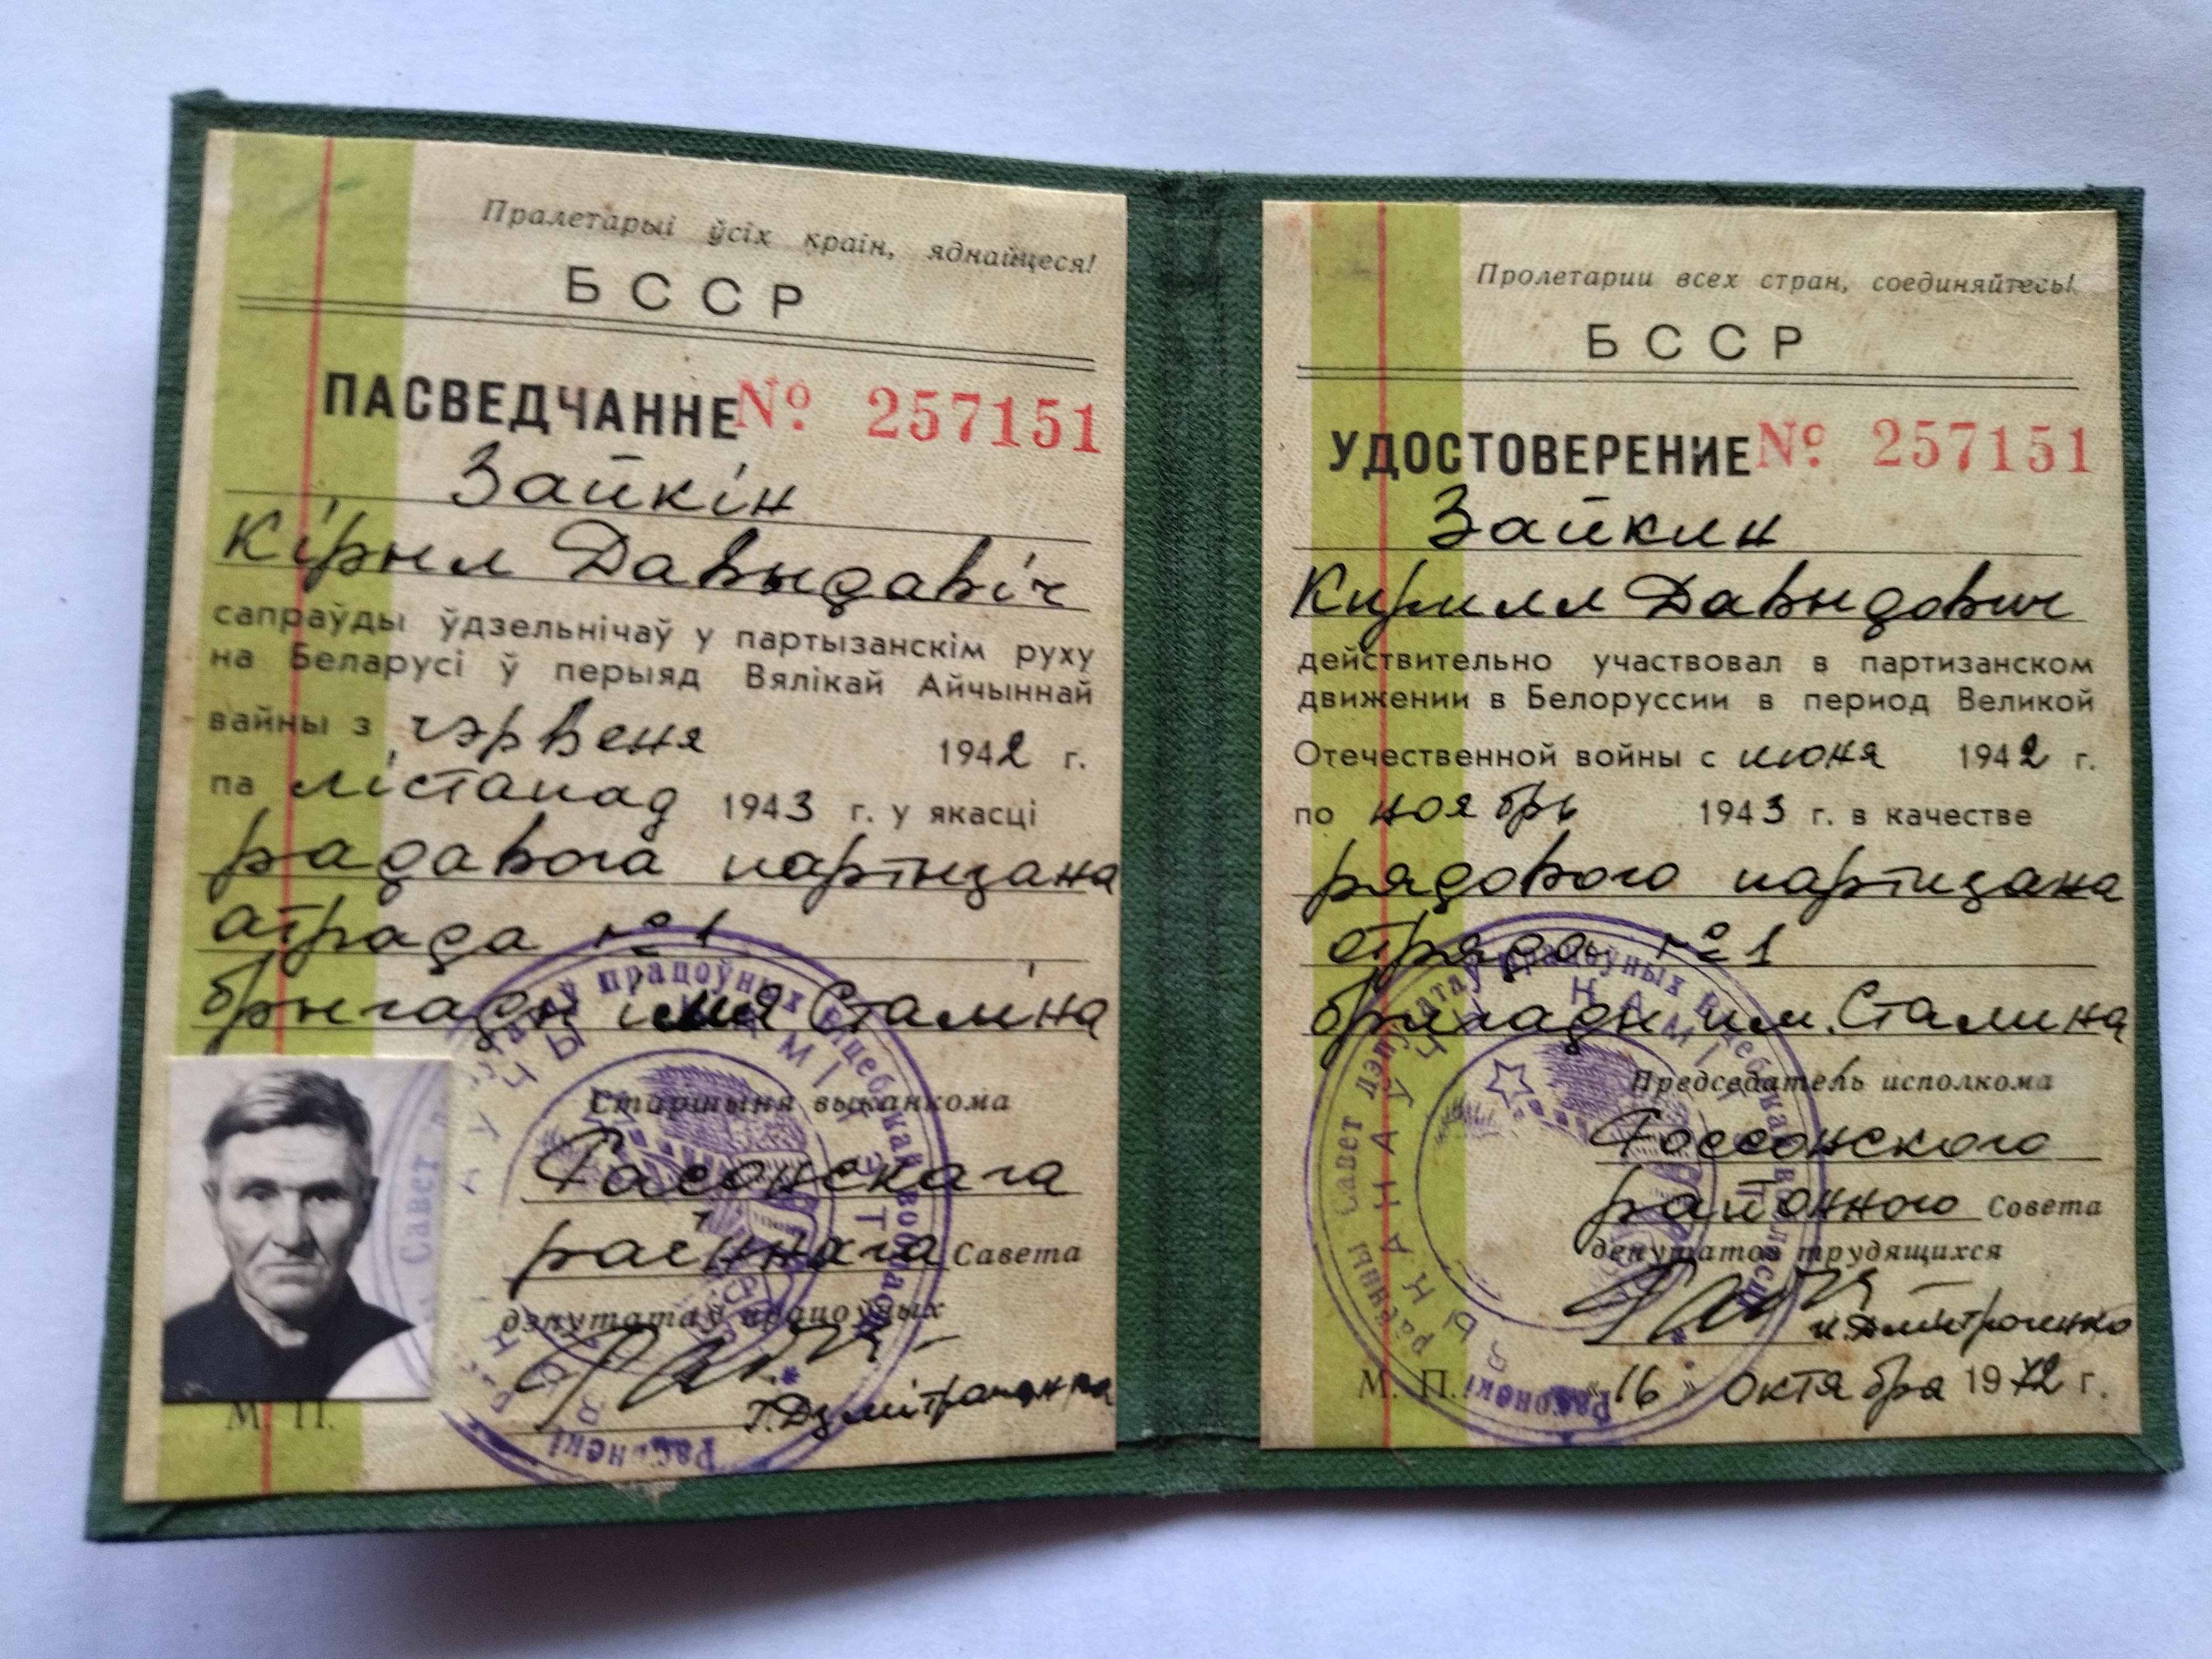 Пралетарыі ўсіх краін, яднайцеся!
БССР
ПАСВЕДЧАННЕ № 257151
Зайкін
Кірыл Давыдавіч
сапраўды ўдзельнічаў у партызанскім руху
на Беларусі ў перыяд Вялікай Айчыннай
вайны з чэрвеня 1942 г.
па лістапад 1943 г. у якасці
радавога партызана
атрада №1
брыгады імя Сталіна
Старшыня выканкома
Расонскага
раённага Савета
дэпутатаў працоўных
М. П.
Пролетарии всех стран, соединяйтесь!
БССР
УДОСТОВЕРЕНИЕ № 257151
Зайкин
Кирилл Давыдович
действительно участвовал в партизанском
движении в Белоруссии в период Великой
Отечественной войны с июня 1942 г.
по ноябрь 1943 г. в качестве
рядового партизана
отряда №1
бригады им. Сталина
Председатель исполкома
Россонского
районного Совета
депутатов трудящихся
М. П. «16» октября 1972 г.